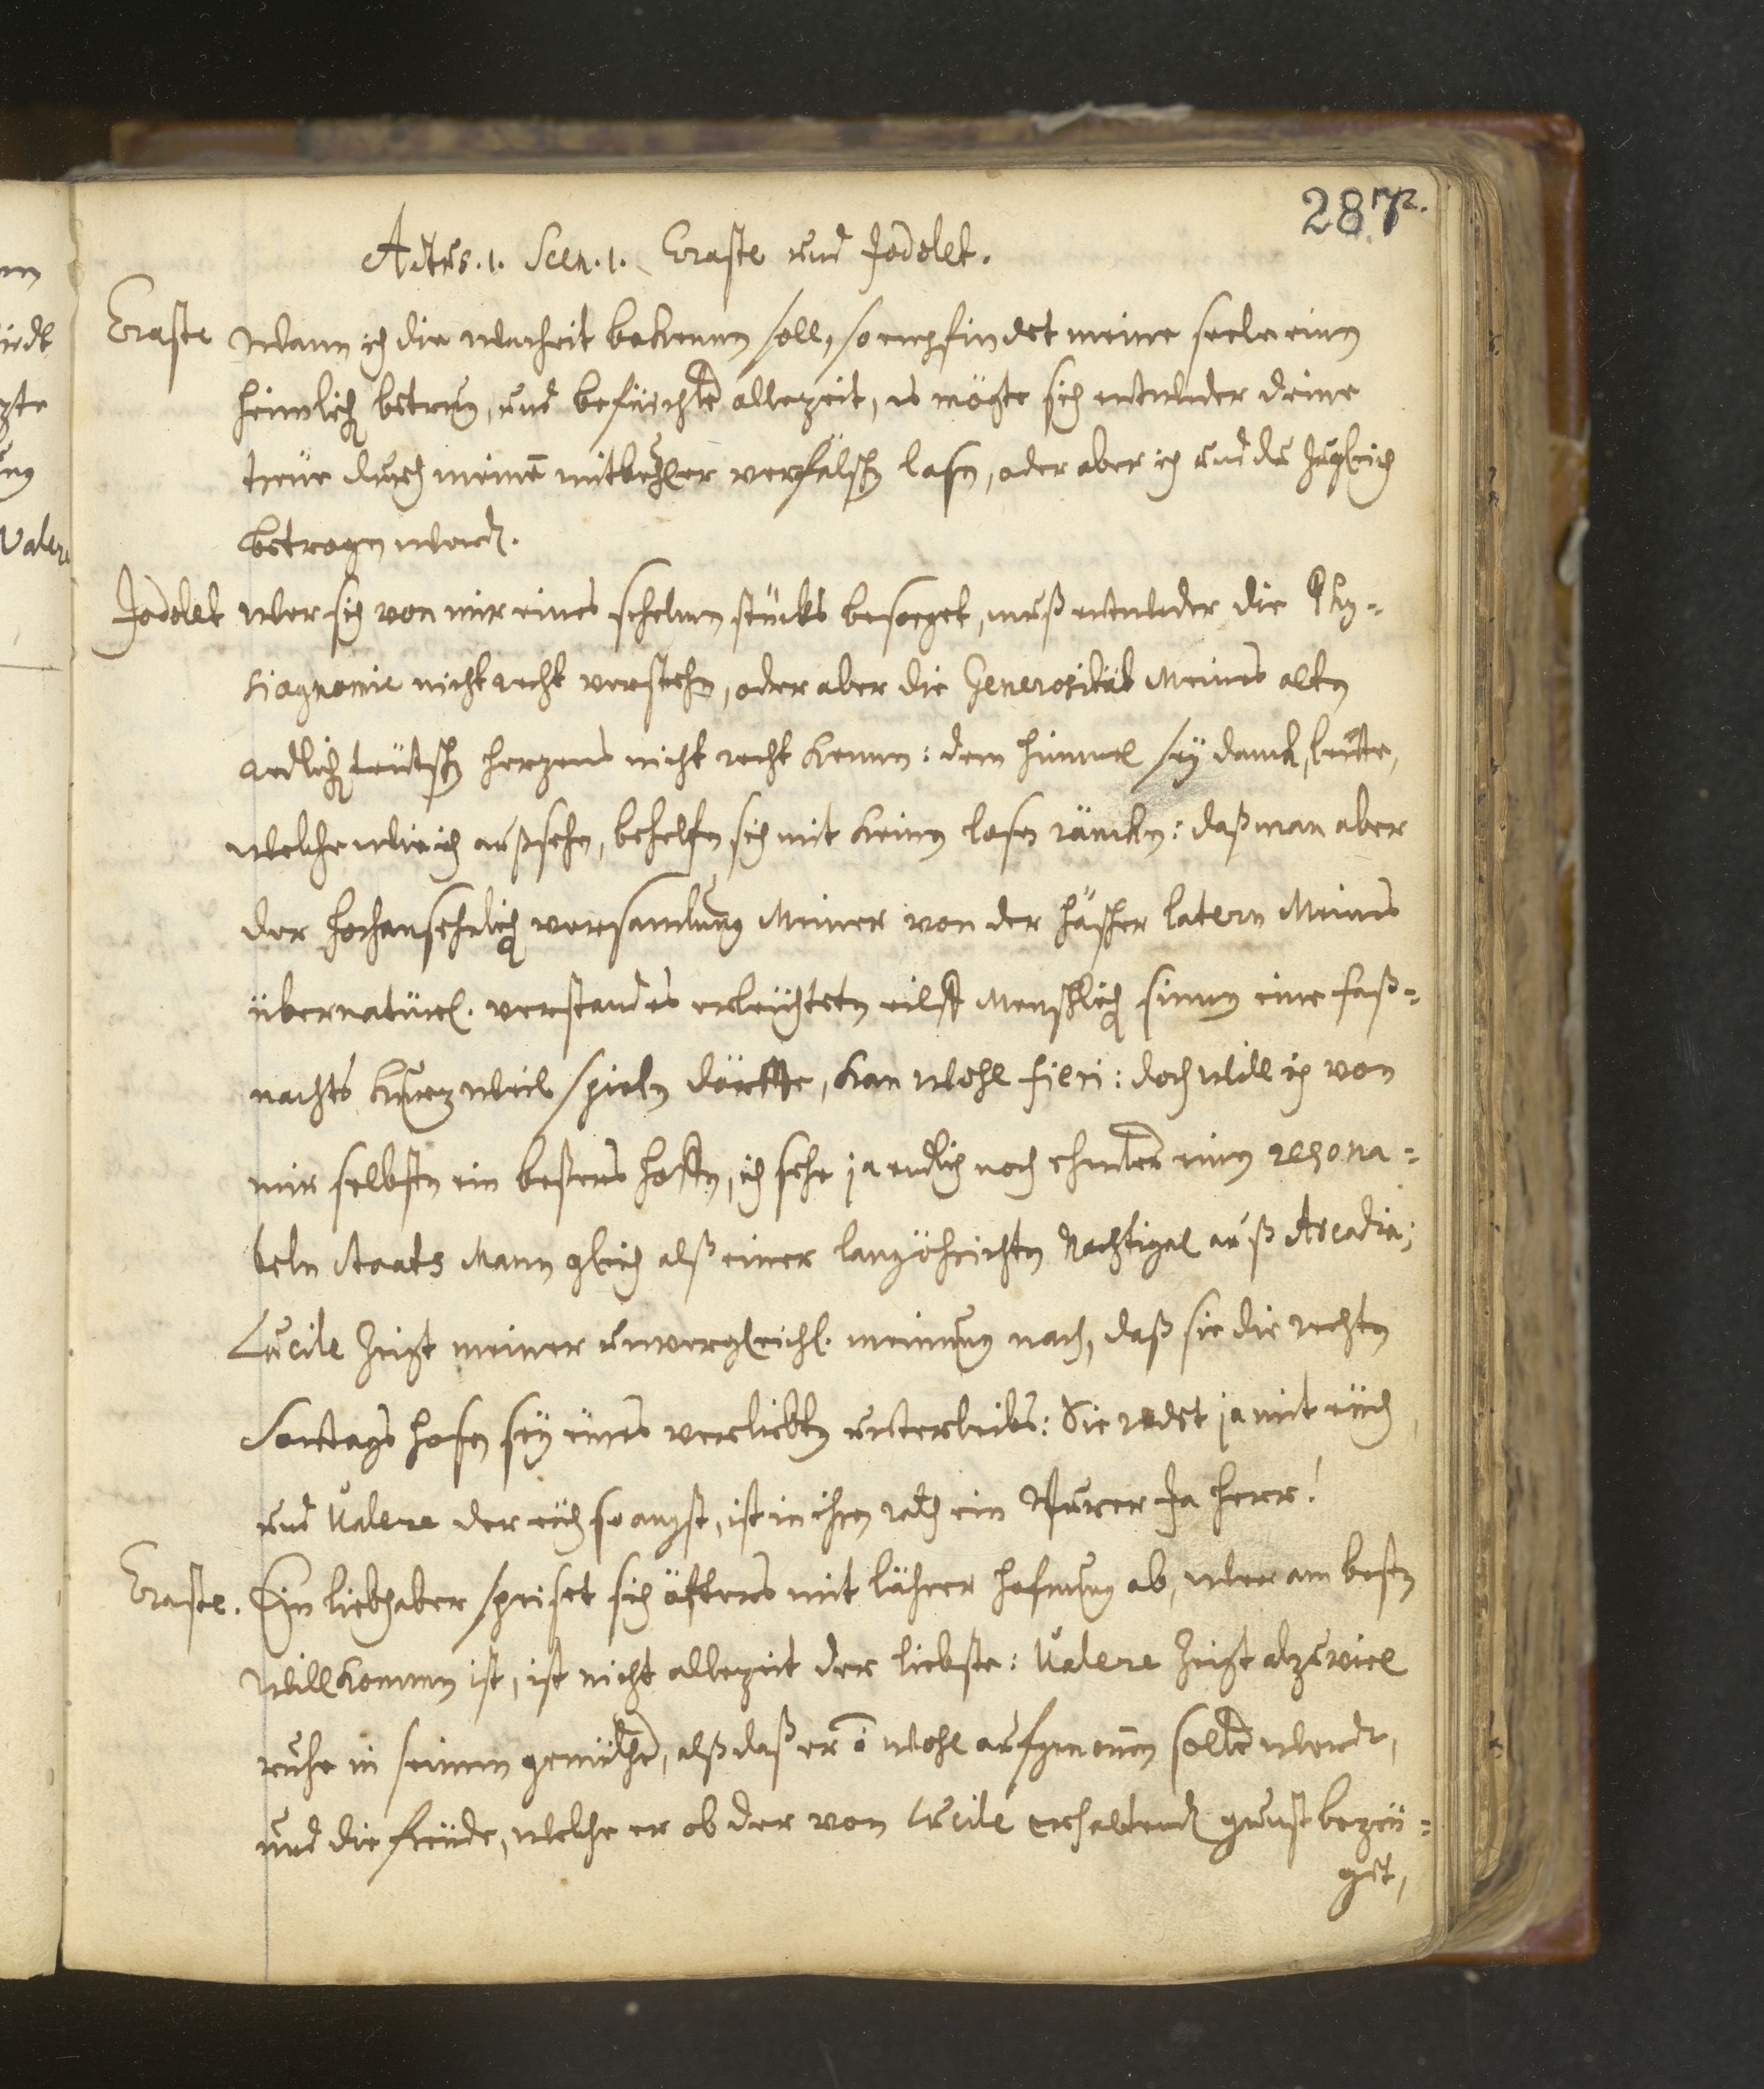 287r.
Actus. 1. Scen. 1. Eraste und Jodolet.
Eraste Wann ich die Warheit bekennen soll, so empfindet meine seele einen
heimlichen betrug, und befürchte allezeit, es mögte sich entweder deine
treue durch meinen mitbuhler verfälschen lasen, oder aber ich und du zugleich
betrogen werden.
Jodolet Wer sich von mir eines schelmen stücks besorget, muß entweder die Phy-
siognomie nicht recht verstehen, oder aber die Generositäb Meines alten
redlichen teutschen herzens nicht recht kennen: dem himmel sey danck, leute,
welche wie ich außsehen, behelfen sich mit keinen losen räncken: daß man aber
der hochansehnlichen versamlung Meiner von der häscher latern Meines
übernatürl. verstandes erleuchteten eilff Menschlichen sinnen eine faß-
nachts kurzweil spielen dörffte, kan wohl fieri: doch will ich von
mir selbsten ein beßers hoffen, ich sehe ja endlich noch ehender einen resona-
beln Staats Mann gleich alß einer langöhrichten Nachtigal auß Arcadia;
Lucile zeigt meiner unvergleichl. meinung nach, daß sie die rechten
Sontags hosen sey eures verliebten unterleibs: Sie redet ja mit euch
und Valere der euch so angst, ist in ihren ein Purer Ja herr!
Eraste. Ein liebhaber speiset sich öfters mit lährer hofnung ab, wer am besten
willkommen ist, ist nicht allezeit der liebste: Valere zeigt alzuviel
ruhe in seinem gemüthe, alß daß er wohl aufgenommen solte werden,
und die freude, welche er ob der von Lucile erhaltenden gunst bezeu-
get,
nn
irdt
zte
ung
Valere